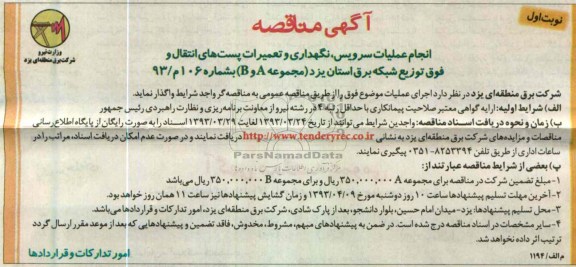 نوبت اول
آگهی مناقصه
وزارت نیرو
شرکت برق منطقه‌ای یزد
انجام عملیات سرویس، نگهداری و تعمیرات پست‌های انتقال و
فوق توزیع شبکه برق استان یزد (مجموعه A و B) بشماره ۱۰۶م/۹۳
شرکت برق منطقه‌ای یزد در نظر دارد اجرای عملیات موضوع فوق را از طریق مناقصه عمومی به مناقصه گر واجد شرایط واگذار نماید.
الف) شرایط اولیه: ارایه گواهی معتبر صلاحیت پیمانکاری با حداقل رتبه ۴ در رشته نیرو از معاونت برنامه‌ریزی و نظارت راهبردی رئیس جمهور
ب) زمان و نحوه دریافت اسناد مناقصه: واجدین شرایط می‌توانند از تاریخ ۱۳۹۳/۰۳/۲۴ لغایت ۱۳۹۳/۰۳/۲۹ اسناد را به صورت رایگان از پایگاه اطلاع رسانی
مناقصات و مزایده‌های شرکت برق منطقه‌ای یزد به نشانی http://www.tenderyrec.co.ir دریافت نمایند و در صورت عدم امکان دریافت اسناد، مراتب را در
ساعات اداری از طریق تلفن ۸۲۵۳۳۹۴-۰۳۵۱ پیگیری نمایند.
ParsNamadData
پ) بعضی از شرایط مناقصه عبارتند از:
۱-مبلغ تضمین شرکت در مناقصه برای مجموعه A ۳۵۰,۰۰۰,۰۰۰ ریال و برای مجموعه B ۳۵۰,۰۰۰,۰۰۰ ریال می‌باشد.
۲-آخرین مهلت تسلیم پیشنهادها ساعت ۱۰ روز دوشنبه مورخ ۱۳۹۳/۰۴/۰۹ و زمان گشایش پیشنهادها نیز ساعت ۱۱ همان روز خواهد بود.
۳- محل تسلیم پیشنهادها: یزد-میدان امام حسین، بلوار دانشجو، بعد از پارک شادی، شرکت برق منطقه‌ای یزد، امور تدارکات و قراردادها می‌باشد.
۴- سایر مشخصات در اسناد مناقصه درج شده است. در ضمن به پیشنهادهای مبهم، مشروط، مخدوش، فاقد تضمین و پیشنهادهایی که بعد از موعد مقرر ارسال گردد
ترتیب اثر داده نخواهد شد.
امور تدارکات و قراردادها
م الف/ ۱۱۹۴